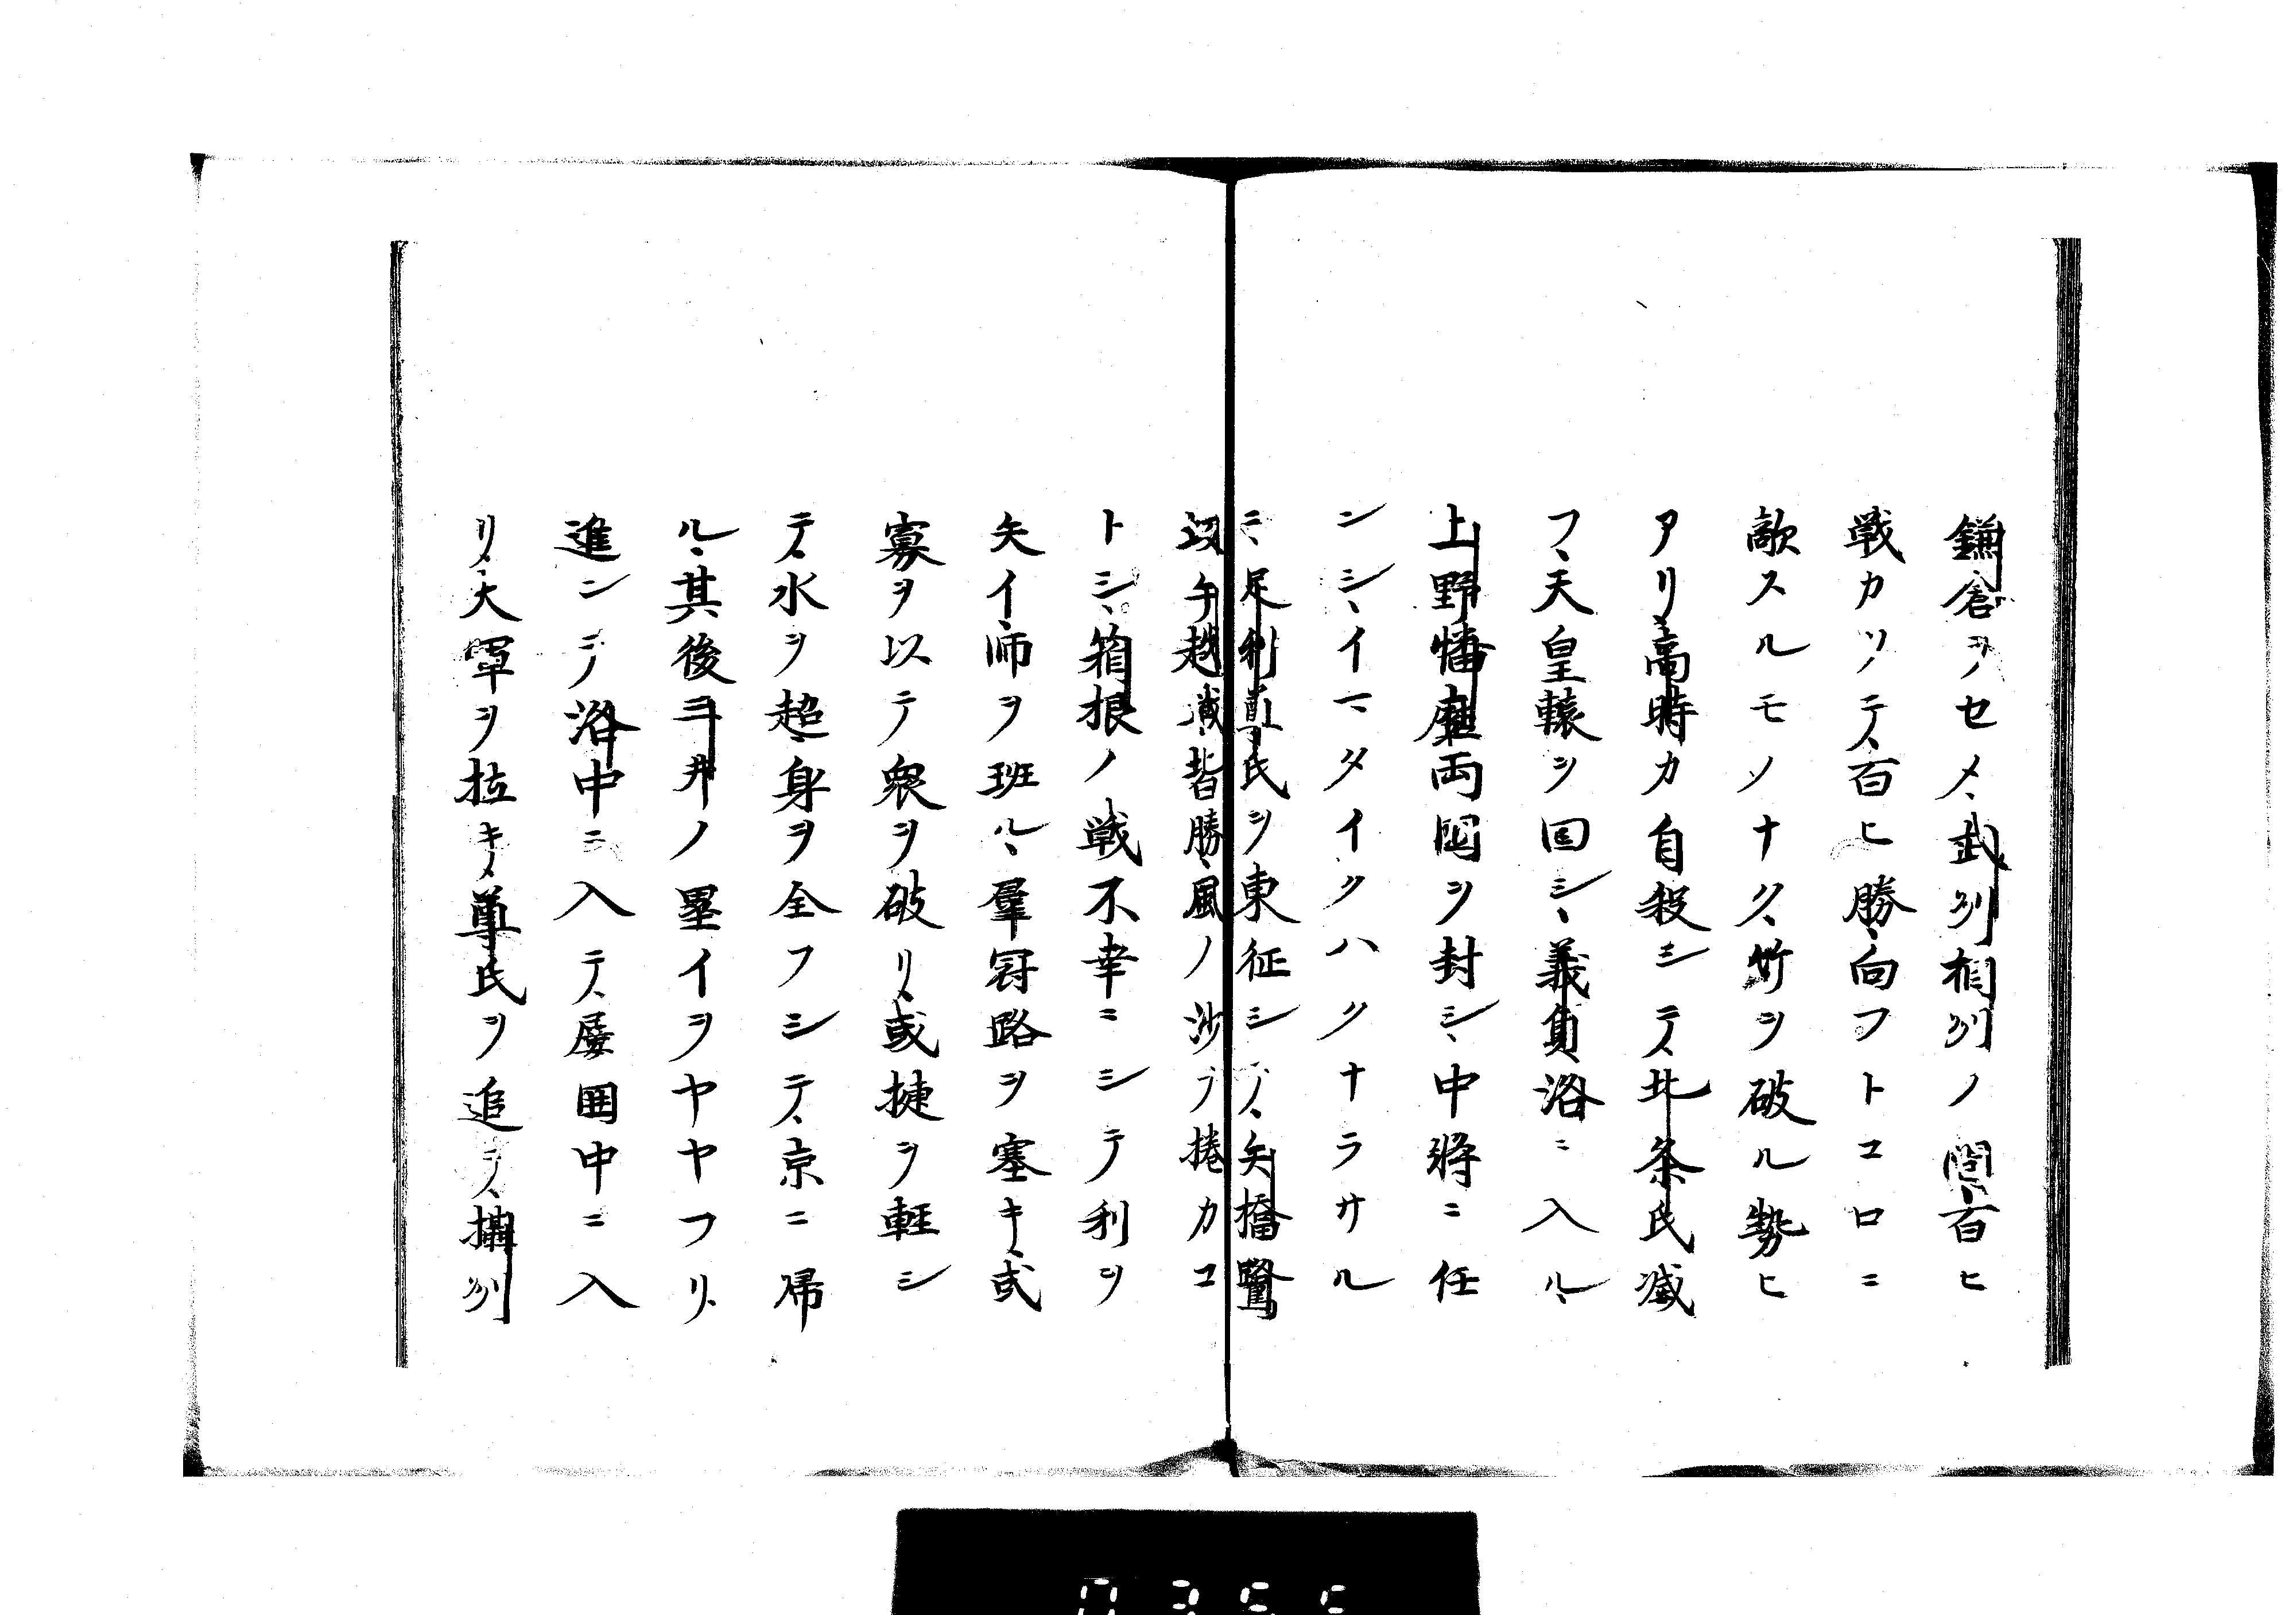 鎌倉ヲセメ、武州相州ノ間、百ヒ
戦カツテ、百ヒ勝、向フトコロニ
敵スルモノナク、竹ヲ破ル勢ヒ
アリ、高時カ自殺シテ、北条氏滅
フ、天皇轅ヲ回シ、義貞洛ニ入ル、
上野播磨両国ヲ封シ、中将ニ任
ンシ、イマタイクハクナラサル
ニ、足利尊氏ヲ東征シテ、矢橋鷺
坂手越義、皆勝、風ノ沙ヲ捲カコ
トシ、箱根ノ戦不幸ニシテ利ヲ
矢イ、師ヲ班ル、羣冦路ヲ塞キ、或
寡ヲ以テ衆ヲ破リ、或捷ヲ軽シ
テ、水ヲ超、身ヲ全フシテ、京ニ帰
ル、其後三井ノ塁イヲヤヤフリ、
進ンテ洛中ニ入テ、屡囲中ニ入
リ、大軍ヲ拉キ、尊氏ヲ追テ、摂州